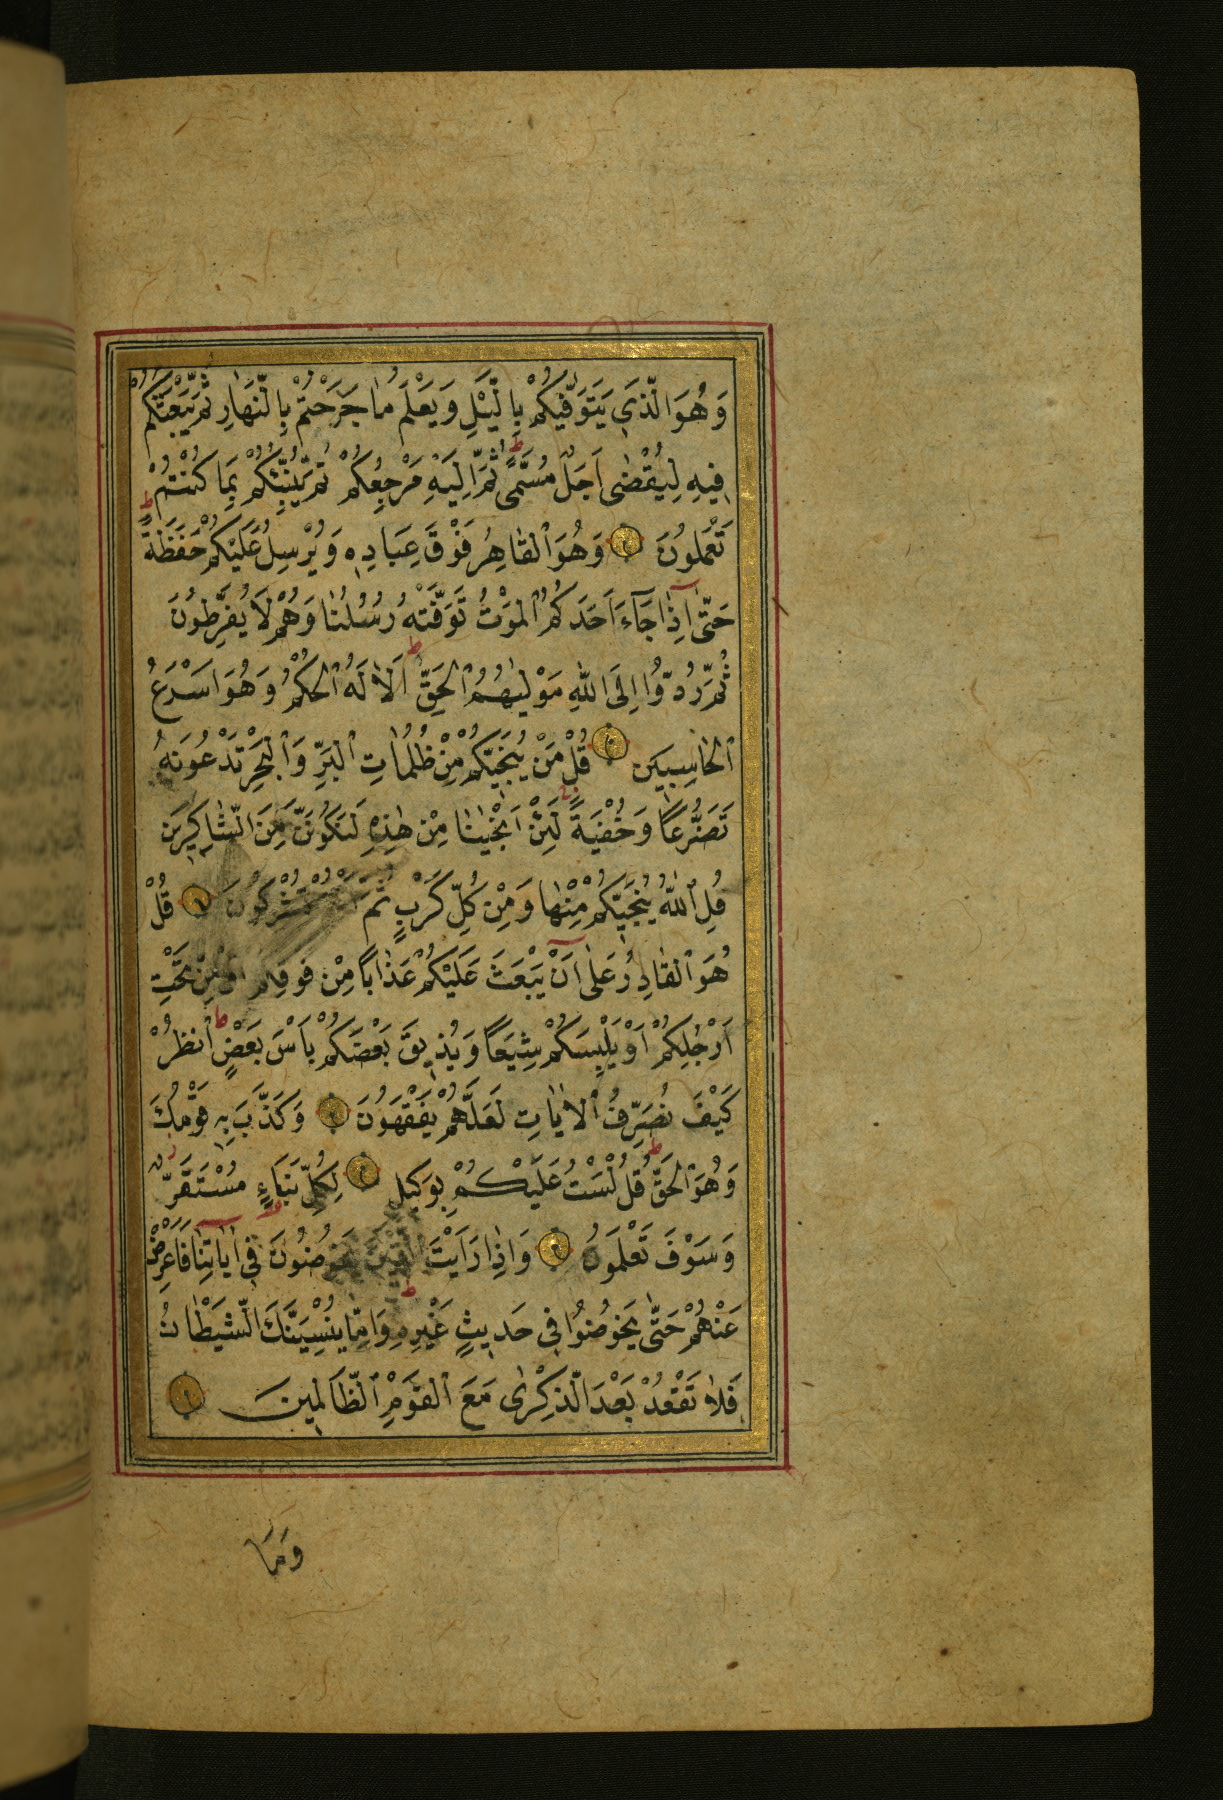 وَهُوَ الَّذِي يَتَوَفّٰيكُمْ بِالَّيْلِ وَيَعْلَمُ مَا جَرَحْتُمْ بِالنَّهَارِ ثُمَّ يَبْعَثُكُمْ
فِيهِ لِيُقْضٰى اَجَلٌ مُسَمًّى ط ثُمَّ اِلَيْهِ مَرْجِعُكُمْ ثُمَّ يُنَبِّئُكُمْ بِمَا كُنْتُمْ
تَعْمَلُونَ وَهُوَ الْقَاهِرُ فَوْقَ عِبَادِهِ وَيُرْسِلُ عَلَيْكُمْ حَفَظَةً ط
حَتّٰى اِذَا جَآءَ اَحَدَكُمُ الْمَوْتُ تَوَفَّتْهُ رُسُلُنَا وَهُمْ لَا يُفَرِّطُونَ
ثُمَّ رُدُّوا اِلَى اللّٰهِ مَوْلٰيهُمُ الْحَقِّ ط اَلَا لَهُ الْحُكْمُ وَهُوَ اَسْرَعُ
الْحَاسِبِينَ قُلْ مَنْ يُنَجِّيكُمْ مِنْ ظُلُمَاتِ الْبَرِّ وَالْبَحْرِ تَدْعُونَهُ
تَضَرُّعًا وَخُفْيَةً لَئِنْ اَنْجَيْتَنَا مِنْ هٰذِهِ لَنَكُونَنَّ مِنَ الشَّاكِرِينَ
قُلِ اللّٰهُ يُنَجِّيكُمْ مِنْهَا وَمِنْ كُلِّ كَرْبٍ ثُمَّ تُشْرِكُونَ قُلْ
هُوَ الْقَادِرُ عَلٰى اَنْ يَبْعَثَ عَلَيْكُمْ عَذَابًا مِنْ فَوْقِكُمْ اَوْ مِنْ تَحْتِ
اَرْجُلِكُمْ اَوْ يَلْبِسَكُمْ شِيَعًا وَيُذِيقَ بَعْضَكُمْ بَأْسَ بَعْضٍ ط اُنْظُرْ
كَيْفَ نُصَرِّفُ الْاٰيَاتِ لَعَلَّهُمْ يَفْقَهُونَ وَكَذَّبَ بِهِ قَوْمُكَ
وَهُوَ الْحَقُّ ط قُلْ لَسْتُ عَلَيْكُمْ بِوَكِيلٍ لِكُلِّ نَبَإٍ مُسْتَقَرٌّ
وَسَوْفَ تَعْلَمُونَ وَاِذَا رَاَيْتَ الَّذِينَ يَخُوضُونَ فِي اٰيَاتِنَا فَاَعْرِضْ
عَنْهُمْ حَتّٰى يَخُوضُوا فِي حَدِيثٍ غَيْرِهِ ط وَاِمَّا يُنْسِيَنَّكَ الشَّيْطَانُ
فَلَا تَقْعُدْ بَعْدَ الذِّكْرٰى مَعَ الْقَوْمِ الظَّالِمِينَ
وَمَا